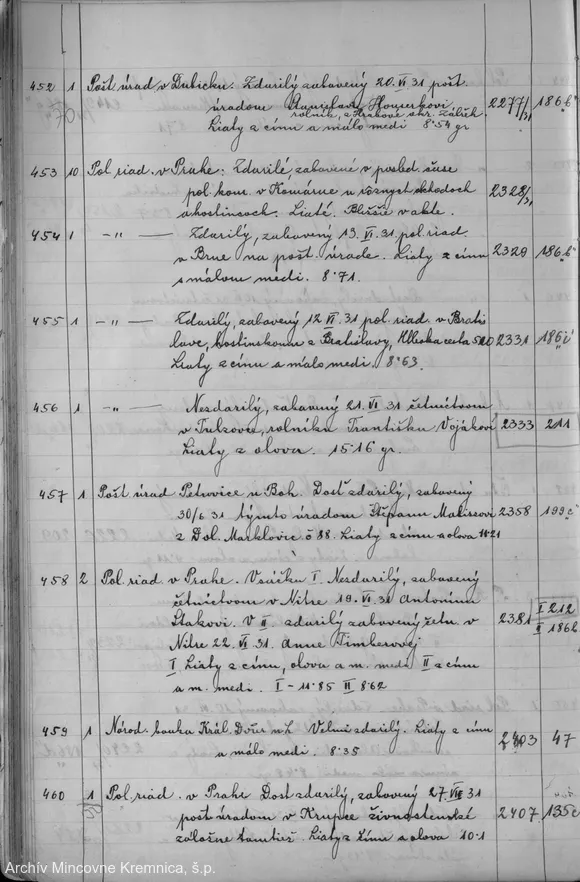 452 1 Pošt. úrad v Dubicku: Zdarilý zabavený 20. VI 31 pošt.
úradom Stanislavu Houserkovi
rolník, z Hrabové okr. Zábřeh
Liaty z cínu a málo medi 8·54 gr 2277/31 186 b
453 10 Pol. riad. v Prahe: Zdarilé, zabavené v posled. čase
pol. kom. v Komárne u rôznych obchodoch
a hostincoch. Liaté. Bližšie v akte. 2328/31
454 1 -„- Zdarilý, zabavený 13. VI. 31. pol. riad.
v Brne na pošt. úrade. Liaty z cínu
s málom medi. 8·71. 2329 186 b
455 1 -„- Zdarilý, zabavený 12 VI 31 pol. riad. v Brati
slave, hostinskomu z Bratislavy,
Liaty z cínu s málo medi. 8·63. 2331 186
456 1 -„- Nezdarilý, zabavený 21. VI 31 četníctvom
v rolníku Františku Vojákovi
Liaty z olova. 15·16 gr. 2333 211
457 1 Pošt. úrad Petrovice u Boh. Dosť zdarilý, zabavený
30/6 31 týmto úradom Štěpanu
z Dol. Marklovic č 88. Liaty z cínu a olova 11·21 2358 199 c
458 2 Pol. riad. v Prahe. V sáčku I. Nezdarilý, zabavený
četníctvom v Nitre 19. VI. 31 Antonínu
V II zdarilý zabavený četn. v
Nitre 22. VI 31. Anne Timberovej
I Liaty z cínu, olova a m. medi II z cínu
a m. medi. I – 11·85 II 8·62 2381 I 212 II 186 b
459 1 Národ. banka Král. Dvůr n L. Velmi zdarilý. Liaty z cínu
a málo medi. 8·35 2403 47
460 1 Pol. riad. v Prahe Dosť zdarilý, zabavený 27 VII 31
pošt úradom v Krupce živnostenské
záložne tamtiež. Liaty z cínu a olova 10·1 2407 135 c
Archív Mincovne Kremnica, š.p.